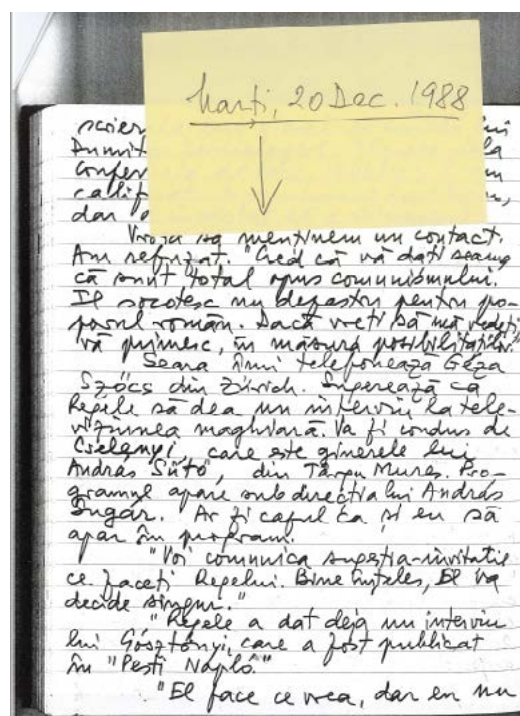 Marți, 20 Dec. 1988
scier
Dumit
Confer la
calif
dar
Vroia să menținem un contact.
Am refuzat. "Cred că vă dați seama
că sunt total opus comunismului.
Il socotesc un dezastru pentru po-
porul român. Dacă vreți să mă vedeți,
vă primesc, în măsura posibilităților."
Seara îmi telefonează Géza
Szöcs din Zürich. Sugerează ca
Regele să dea un interviu la tele-
viziunea maghiară. Va fi condus de
Cselenyi, care este ginerele lui
András Sütö, din Târgu Mureș. Pro-
gramul apare sub direcția lui András
Sugár. Ar fi cazul ca și eu să
apar în program.
"Voi comunica sugestia-invitație
ce faceți Regelui. Bine înțeles, El va
decide singur."
"Regele a dat deja un interviu
lui Gósztónyi, care a fost publicat
în "Pesti Napló."
"El face ce vrea, dar eu nu